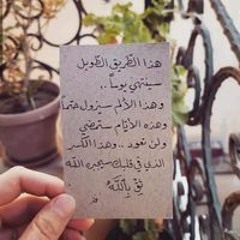 هذا الطّريق الطّويل
سينتهي يوماً ..
وهذا الألم سيزول حتماً
وهذه الأيّام ستمضي
ولن تعود .. وهذا الكسر
الذي في قلبك سيجبره الله
ثِق بِاللَّه